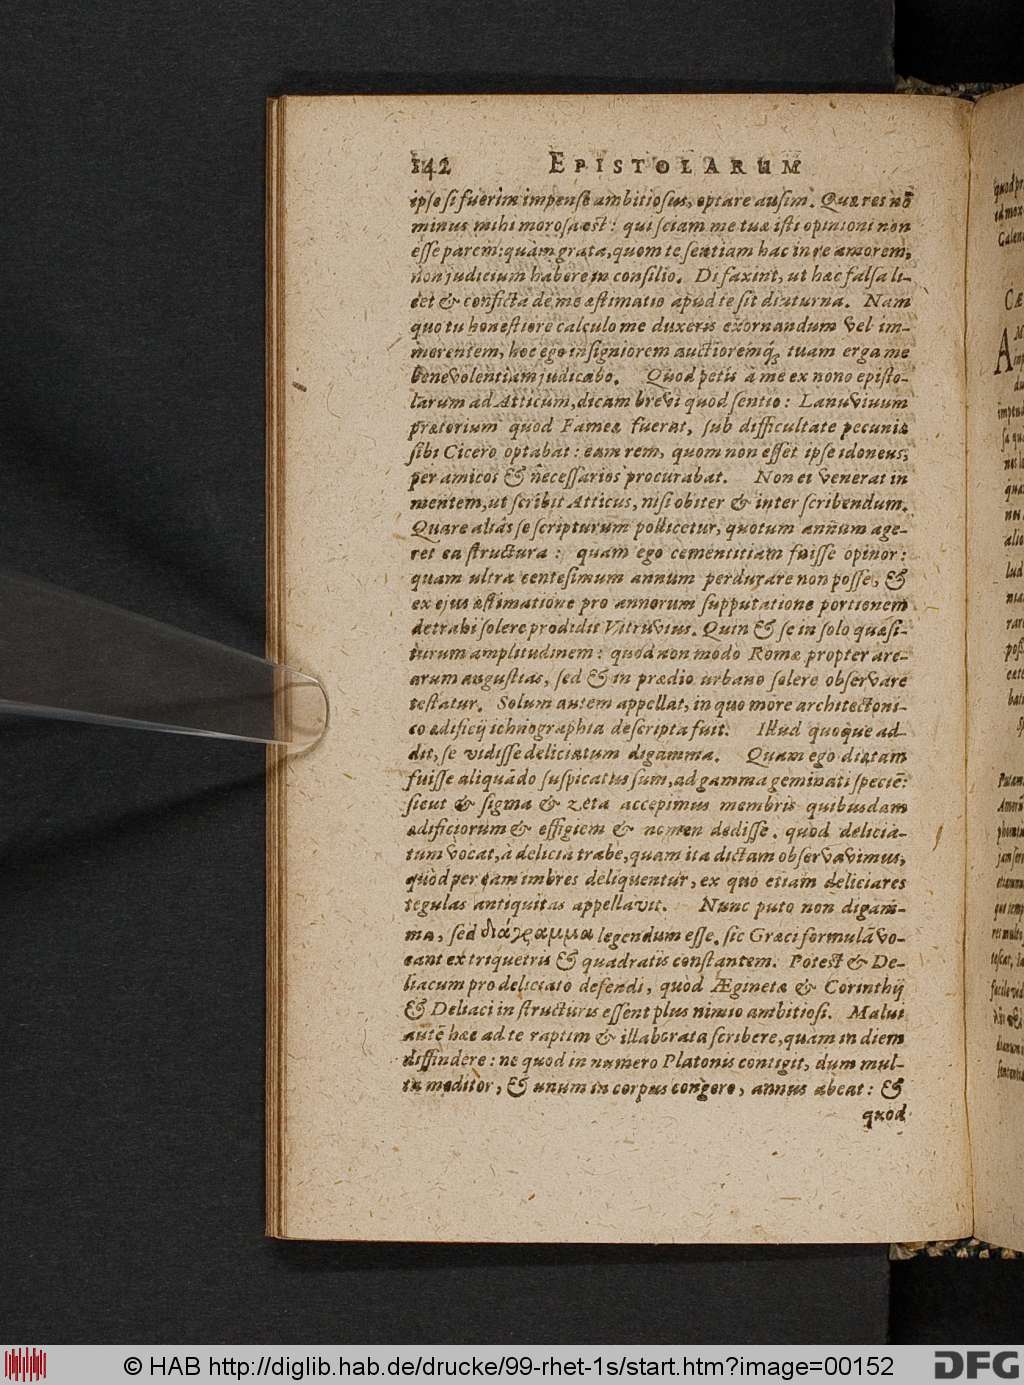 142 EPISTOLARUM
ipse si fuerim impensè ambitiosus, optare ausim. Quæ res nō
minus mihi morosa est: qui sciam me tuæ isti opinioni non
esse parem: quàm grata, quom te sentiam hac in re amorem,
non judicium habere in consilio. Di faxint, ut hæc falsa li-
cet & conficta de me æstimatio apud te sit diuturna. Nam
quo tu honestiore calculo me duxeris exornandum vel im-
merentem, hoc ego insigniorem auctioremq; tuam erga me
benevolentiam judicabo. Quod petis à me ex nono episto-
larum ad Atticum, dicam brevi quod sentio: Lanuviuum
prætorium quod Fameæ fuerat, sub difficultate pecuniæ
sibi Cicero optabat: eam rem, quom non esset ipse idoneus,
per amicos & necessarios procurabat. Non ei venerat in
mentem, ut scribit Atticus, nisi obiter & inter scribendum.
Quare aliàs se scripturum pollicetur, quotum annum age-
ret ea structura: quam ego cementitiam fuisse opinor:
quam ultra centesimum annum perdurare non posse, &
ex ejus æstimatione pro annorum supputatione portionem
detrahi solere prodidit Vitruvius. Quin & se in solo quæsi-
turum amplitudinem: quod non modò Romæ propter are-
arum angustias, sed & in prædio urbano solere observare
testatur. Solum autem appellat, in quo more architectoni-
co ædificij ichnographia descripta fuit. Illud quoque ad-
dit, se vidisse deliciatum digamma. Quam ego dictam
fuisse aliquādo suspicatus sum, ad gamma geminati speciē:
sicut & sigma & zeta accepimus membris quibusdam
ædificiorum & effigiem & nomen dedisse. quod delicia-
tum vocat, à delicia trabe, quam ita dictam observavimus,
quòd per eam imbres deliquentur, ex quo etiam deliciares
tegulas antiquitas appellavit. Nunc puto non digam-
ma, sed διάγραμμα legendum esse. sic Græci formulā vo-
cant ex triquetris & quadratis constantem. Potest & De-
liacum pro deliciato defendi, quòd Æginetæ & Corinthij
& Deliaci in structuris essent plus nimio ambitiosi. Malui
autē hæc ad te raptim & illaborata scribere, quam in diem
diffindere: ne quod in numero Platonis contigit, dum mul-
ta meditor, & unum in corpus congero, annus abeat: &
quod
© HAB http://diglib.hab.de/drucke/99-rhet-1s/start.htm?image=00152
DFG